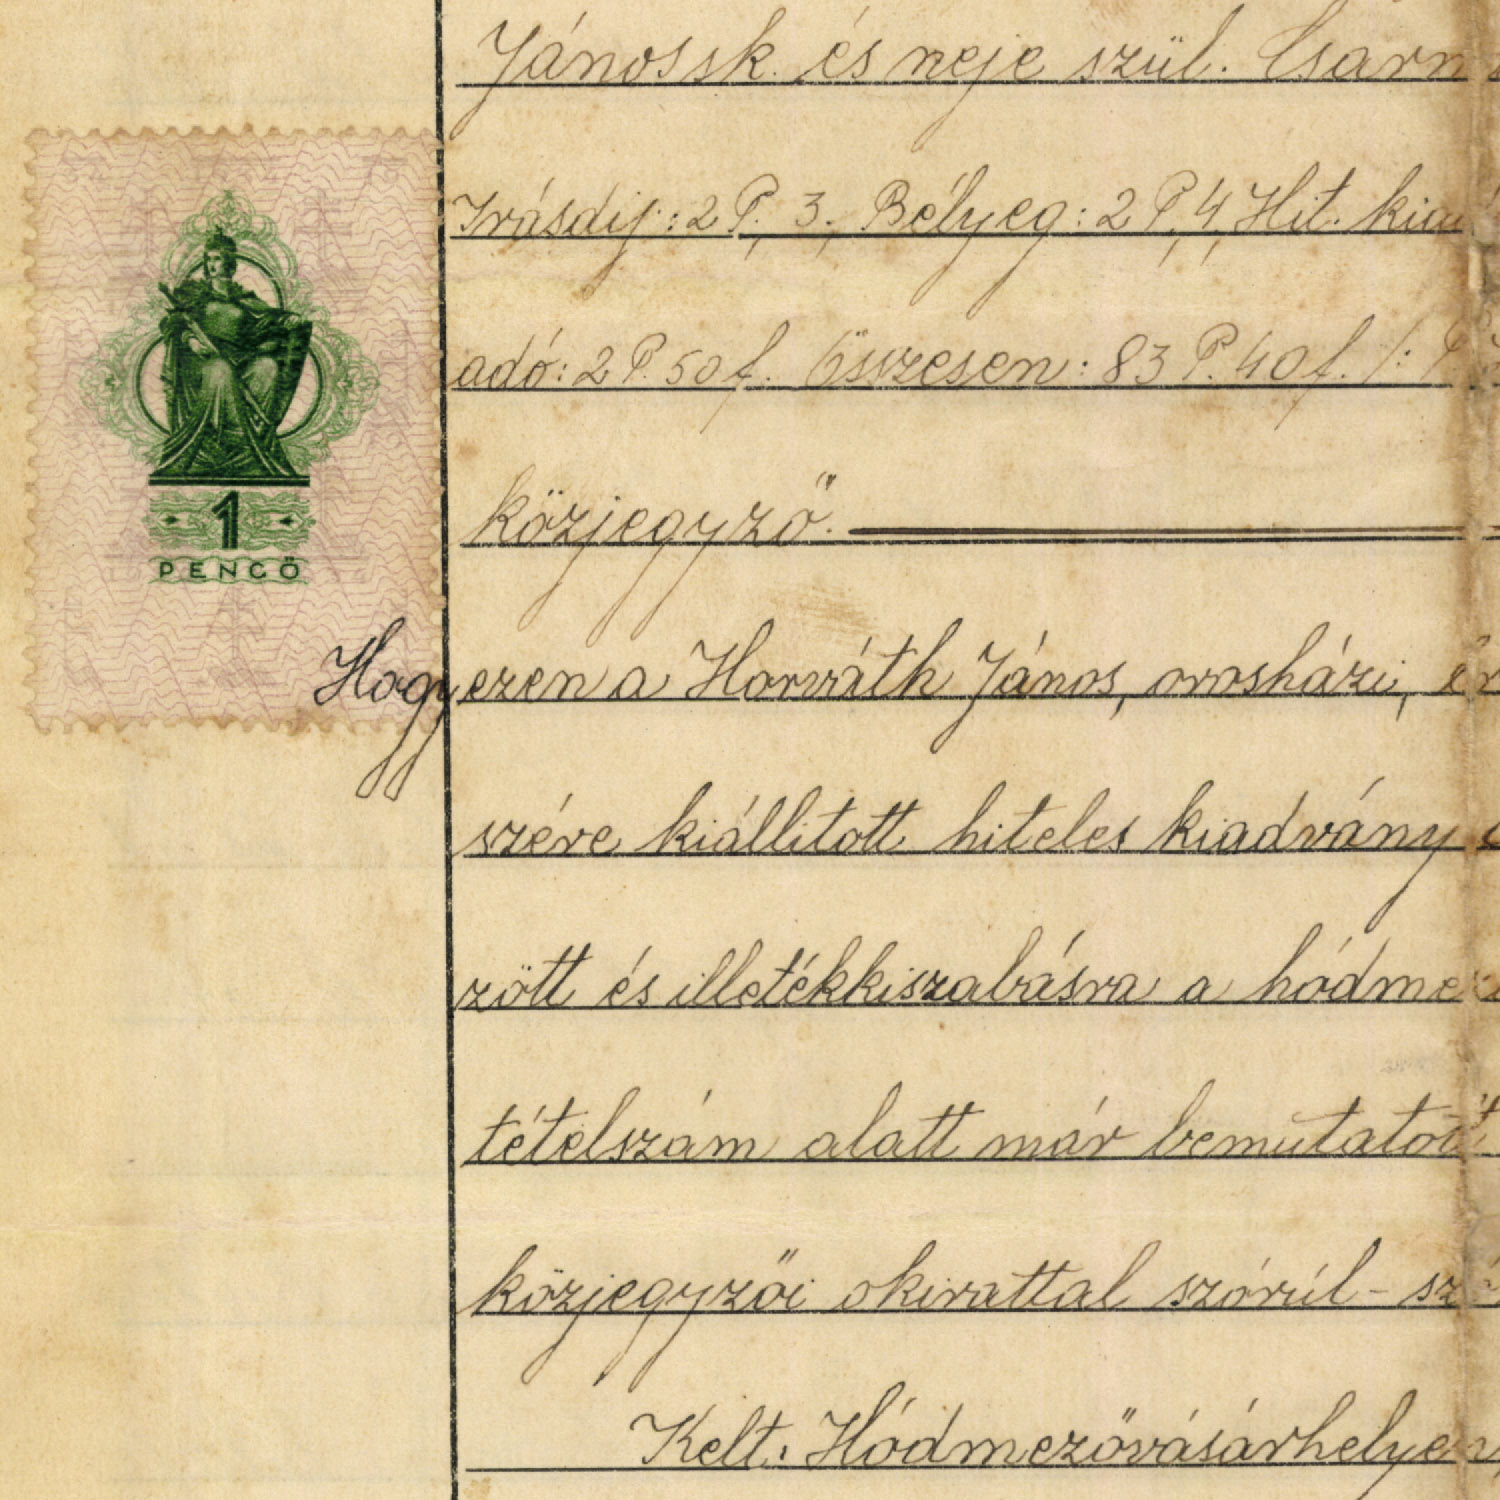 Jánossk. és neje szül. Csarn
Irásdij: 2 P. 3., Bélyeg: 2 P, 4, Hit. kia
adó: 2 P. 50 f. Összesen: 83 P. 40 f. /:
közjegyző.
1
PENGŐ
Hogy ezen a Horváth János, orosházi,
szére kiállitott hiteles kiadvány
zött és illetékkiszabásra a hódme
tételszám alatt már bemutatott
közjegyzői okirattal szórúl-sz
Kelt. Hódmezővásárhelyen,